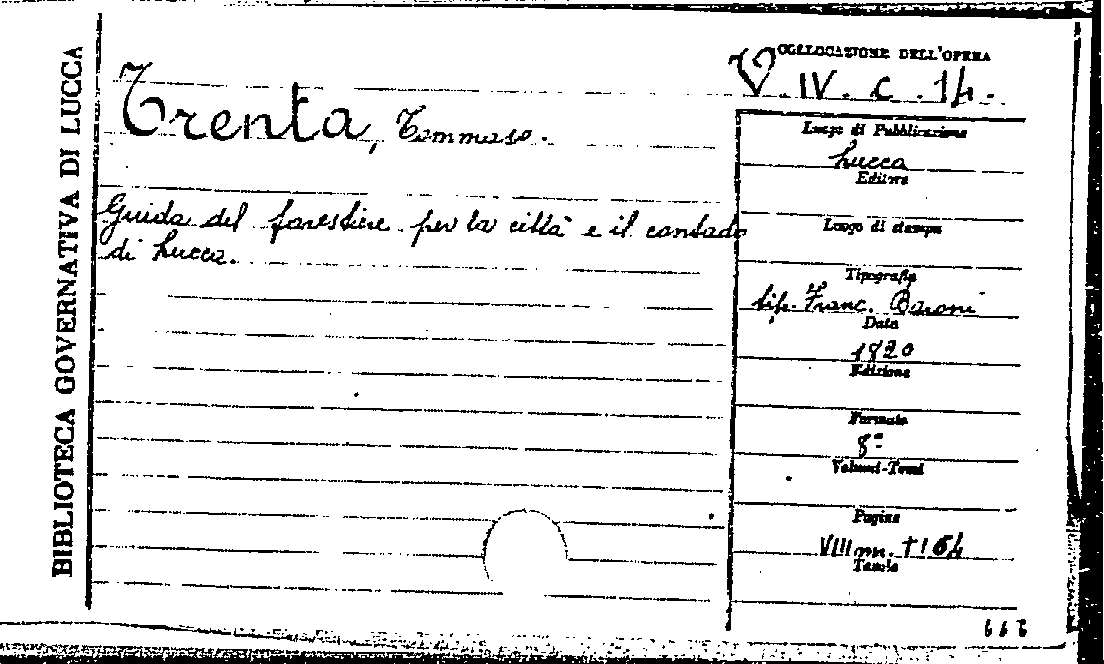 BIBLIOTECA GOVERNATIVA DI LUCCA
COLLOCAZIONE DELL'OPERA
V. IV. C. 14.
Trenta, Tommaso.
Guida del forestiere per la città e il contado
di Lucca.
Luogo di Pubblicazione
Lucca
Editore
Luogo di stampa
Tipografia
tip. Franc. Baroni
Data
1820
Edizione
Formato
8º
Volumi-Tomi
Pagine
VIII nn. +164
Tavole